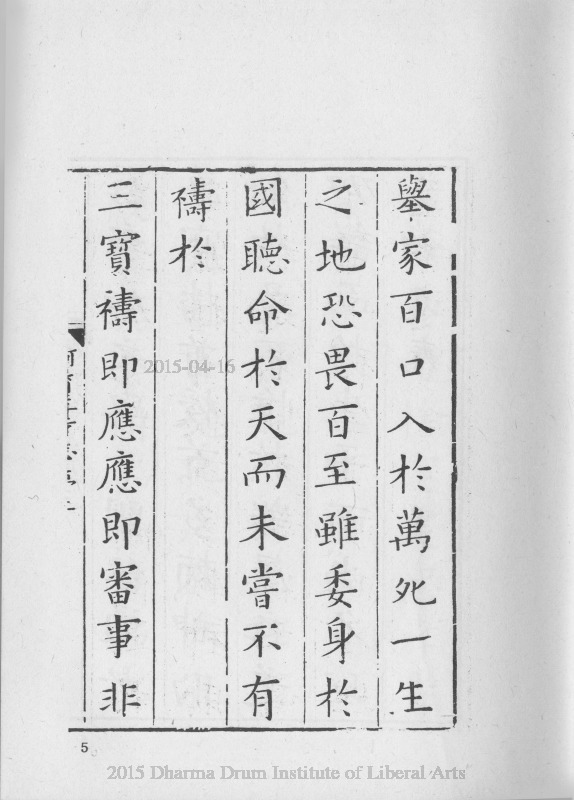 舉家百口入於萬死一生
之地恐畏百至雖委身於
國聽命於天而未嘗不有
禱於
三寳禱即應應即審事非
2015-04-16
5
2015 Dharma Drum Institute of Liberal Arts